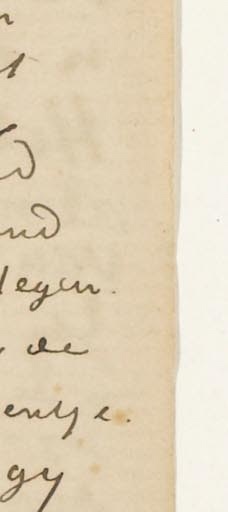 t
d
nd
legen.
de
entje.
gy